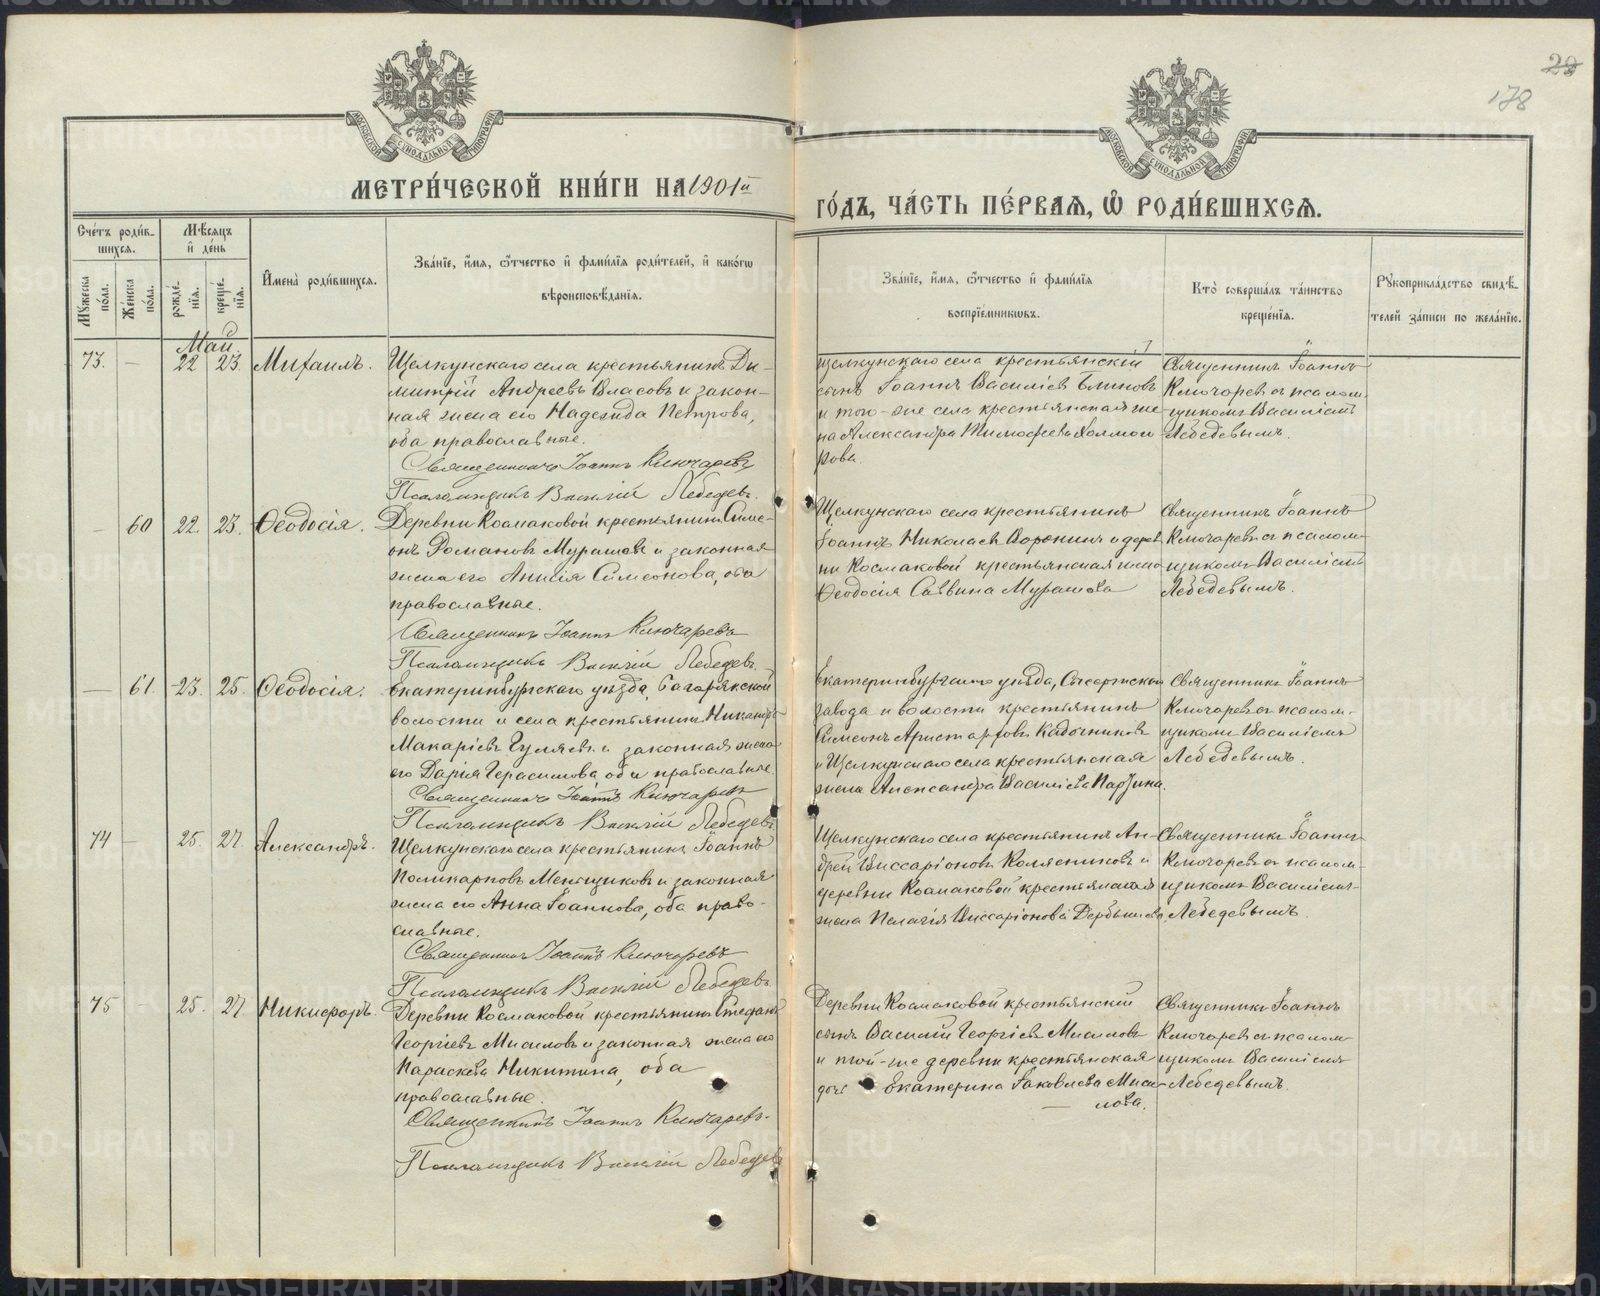 29
178
МОСКОВСКОЙ СѴНОДАЛЬНОЙ ТИПОГРАФІИ
МОСКОВСКОЙ СѴНОДАЛЬНОЙ ТИПОГРАФІИ
МЕТРИ́ЧЕСКОЙ КНИ́ГИ НА 1901й
ГО́ДЪ, ЧА́СТЬ ПЕ́РВАЯ, Ѡ РОДИ́ВШИХСЯ.
Сче́тъ роди́в-
шихся.
Мѣ́сяцъ
и҆ де́нь
Мꙋ́жеска
по́ла.
Же́нска
по́ла.
рожде́-
нїя.
креще́-
нїя.
И҆мена̀ роди́вшихся.
Зва́нїе, и҆́мя, ѻ҆́тчество и҆ фами́лїя роди́телей, и҆ како́гѡ
вѣроисповѣ́данїя.
Зва́нїе, и҆́мя, ѻ҆́тчество и҆ фами́лїя
воспрїе́мникѡвъ.
Кто̀ соверша́лъ та́инство
креще́нїя.
Рꙋкоприкла́дство свидѣ́-
телей за́писи по жела́нїю.
Май.
73. — 22 23. Михаилъ.
Щелкунскаго села крестьянинъ Ди-
митрій Андреевъ Власовъ и закон-
ная жена его Надежда Петрова,
оба православные.
Священникъ Іоаннъ Ключаревъ
Псаломщикъ Василій Лебедевъ.
щелкунскаго села крестьянскій
сынъ Іоаннъ Василіевъ Блиновъ
и того-же села крестьянская же-
на Александра Тимофеева Холмого
рова.
Священникъ Іоаннъ
Ключаревъ съ псалом-
щикомъ Василіемъ
Лебедевымъ.
— 60 22. 23. Ѳеодосія.
Деревни Космаковой крестьянинъ Симе-
онъ Романовъ Мурашовъ и законная
жена его Анисія Симеонова, оба
православные.
Священникъ Іоаннъ Ключаревъ
Псаломщикъ Василій Лебедевъ.
Щелкунскаго села крестьянинъ
Іоаннъ Николаевъ Воронинъ и дерев
ни Космаковой крестьянская жена
Ѳеодосія Саввина Мурашова
Священникъ Іоаннъ
Ключаревъ съ псалом-
щикомъ Василіемъ
Лебедевымъ.
— 61. 23. 25. Ѳеодосія.
Екатеринбургскаго уѣзда,
волости и села крестьянинъ Никандръ
Макаріевъ Гуляевъ и законная жена
его Дарія Герасимова, оба православные.
Священникъ Іоаннъ Ключаревъ
Псаломщикъ Василій Лебедевъ.
Екатеринбургскаго уѣзда, Сысертскаго
завода и волости крестьянинъ
Симеонъ Аристарховъ Кадочниковъ
и Щелкунскаго села крестьянская
жена Александра Василіева Парзина.
Священникъ Іоаннъ
Ключаревъ съ псалом-
щикомъ Василіемъ
Лебедевымъ.
74 — 25. 27. Александръ.
Щелкунскаго села крестьянинъ Іоаннъ
Поликарповъ Меньщиковъ и законная
жена его Анна Іоаннова, оба право-
славные.
Священникъ Іоаннъ Ключаревъ
Псаломщикъ Василій Лебедевъ
Щелкунскаго села крестьянинъ Ан-
дрей Виссаріоновъ Колясниковъ и
деревни Космаковой крестьянская
жена Пелагія Виссаріонова Дербышева
Священникъ Іоаннъ
Ключаревъ съ псалом-
щикомъ Василіемъ
Лебедевымъ.
75 — 25. 27 Никифоръ.
Деревни Космаковой крестьянинъ Стефанъ
Георгіевъ Мисиловъ и законная жена его
Параскева Никитина, оба
православные.
Священникъ Іоаннъ Ключаревъ.
Псаломщикъ Василій Лебедевъ
Деревни Космаковой крестьянскій
сынъ Василій Георгіевъ Мисиловъ
и той-же деревни крестьянская
дочь Екатерина Іаковлева Миси-
лова.
Священникъ Іоаннъ
Ключаревъ съ псалом-
щикомъ Василіемъ
Лебедевымъ.
METRIKI.GASO-URAL.RU